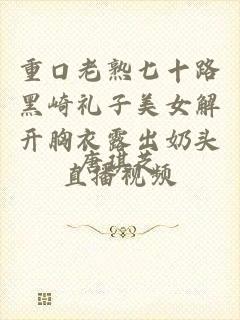 重口老熟七十路
黑崎礼子美女解
开胸衣露出奶头
直播视频
唐琪芝